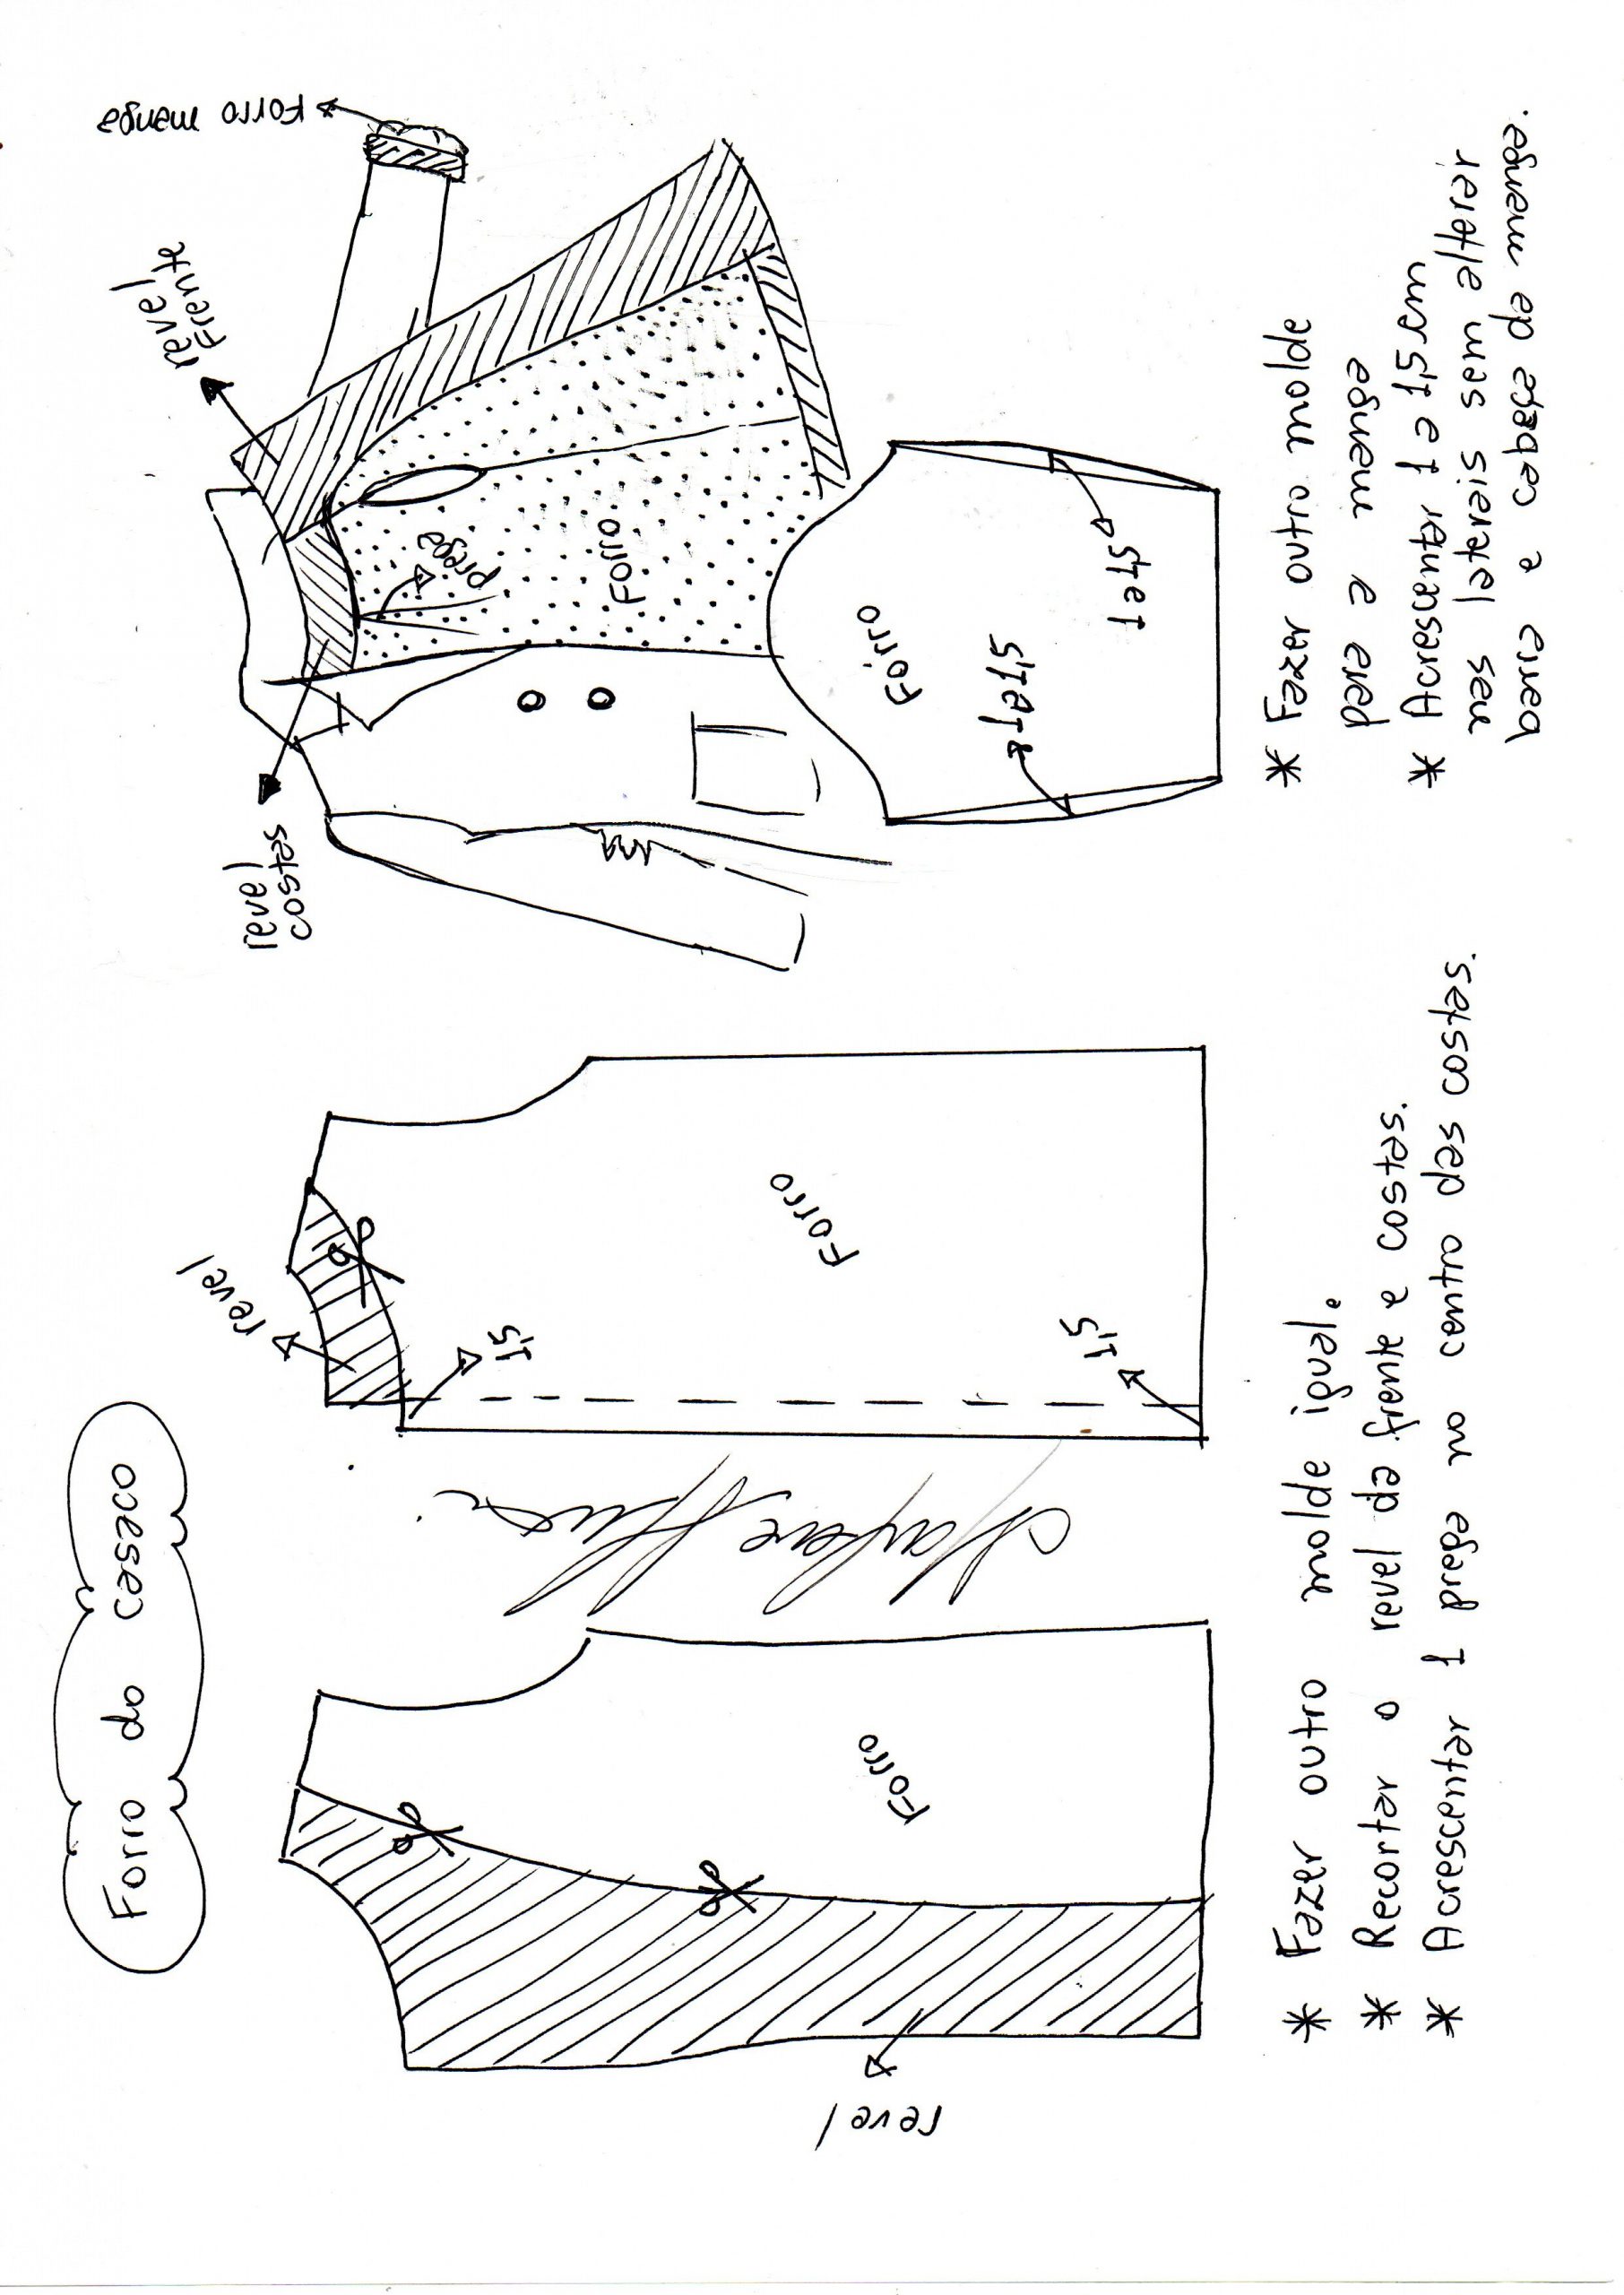 Forro do casaco
revel
Forro
revel
1,5
1,5
Forro
revel
costas
revel
Frente
Forro manga
prega
Forro
Forro
1 a 1,5
1 a 1,5
* Fazer outro molde igual.
* Recortar o revel da frente e costas.
* Acrescentar 1 prega no centro das costas.
* Fazer outro molde
para a manga
* Acrescentar 1 a 1,5 cm
nas laterais sem alterar
cava e cabeça da manga.